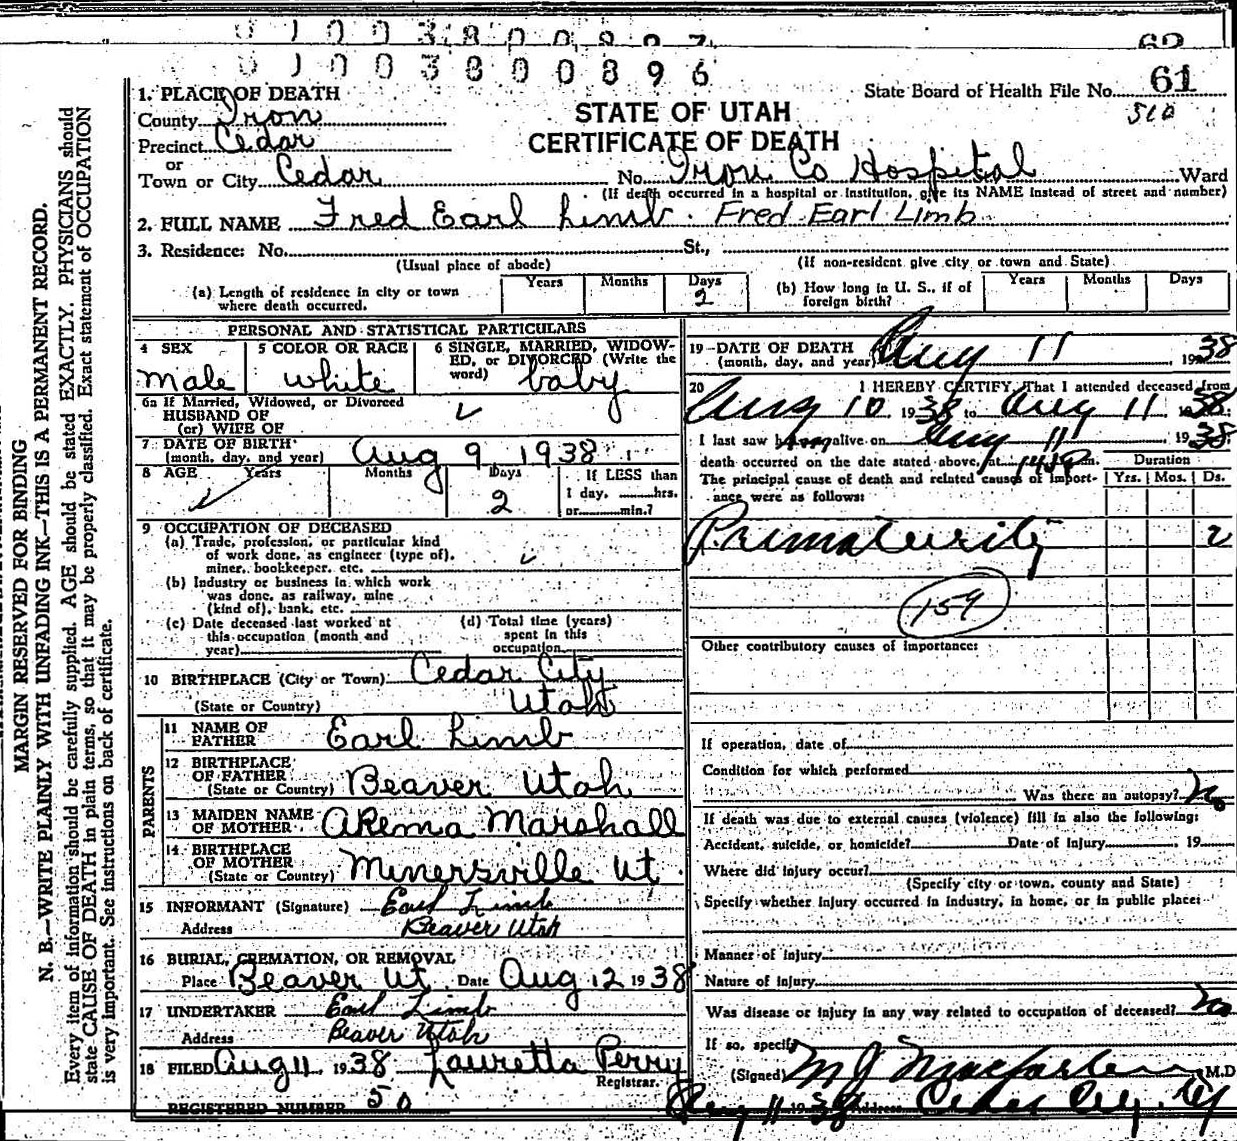 0 1 0 0 3 8 0 0 8 9 7
62
0 1 0 0 3 8 0 0 8 9 6
State Board of Health File No. 61
510
STATE OF UTAH
CERTIFICATE OF DEATH
1. PLACE OF DEATH
County Iron
Precinct Cedar
or
Town or City Cedar No. Iron Co Hospital Ward
(If death occurred in a hospital or institution, give its NAME instead of street and number)
2. FULL NAME Fred Earl Limb. Fred Earl Limb
3. Residence: No. St.,
(Usual place of abode) (If non-resident give city or town and State)
(a) Length of residence in city or town where death occurred. Years Months Days 2
(b) How long in U. S., if of foreign birth? Years Months Days
PERSONAL AND STATISTICAL PARTICULARS
4 SEX male
5 COLOR OR RACE white
6 SINGLE, MARRIED, WIDOWED, or DIVORCED (Write the word) baby
6a If Married, Widowed, or Divorced
HUSBAND OF
(or) WIFE OF
7 DATE OF BIRTH
(month, day, and year) Aug 9 1938
8 AGE Years Months Days 2 If LESS than
1 day, hrs.
or min.?
9 OCCUPATION OF DECEASED
(a) Trade, profession, or particular kind
of work done, as engineer (type of),
miner, bookkeeper, etc.
(b) Industry or business in which work
was done, as railway, mine
(kind of), bank, etc.
(c) Date deceased last worked at
this occupation (month and
year)
(d) Total time (years)
spent in this
occupation
10 BIRTHPLACE (City or Town) Cedar City
(State or Country) Utah
PARENTS
11 NAME OF FATHER Earl Limb
12 BIRTHPLACE OF FATHER
(State or Country) Beaver Utah
13 MAIDEN NAME OF MOTHER Arema Marshall
14 BIRTHPLACE OF MOTHER
(State or Country) Minersville Ut.
15 INFORMANT (Signature) Earl Limb
Address Beaver Utah
16 BURIAL, CREMATION, OR REMOVAL
Place Beaver Ut. Date Aug 12 1938
17 UNDERTAKER Earl Limb
Address Beaver Utah
18 FILED Aug 11 1938 Lauretta Perry
Registrar.
REGISTERED NUMBER 50
19 DATE OF DEATH
(month, day, and year) Aug 11 1938
20 I HEREBY CERTIFY, That I attended deceased from
Aug 10 1938 to Aug 11 1938
I last saw him alive on Aug 11 1938
death occurred on the date stated above, at m.
The principal cause of death and related causes of importance were as follows:
Duration
Yrs. Mos. Ds.
Prematurity 2
159
Other contributory causes of importance:
If operation, date of
Condition for which performed
Was there an autopsy? No
If death was due to external causes (violence) fill in also the following:
Accident, suicide, or homicide? Date of injury 19
Where did injury occur?
(Specify city or town, county and State)
Specify whether injury occurred in industry, in home, or in public place:
Manner of injury
Nature of injury
Was disease or injury in any way related to occupation of deceased? No
If so, specify
(Signed) M J Macfarlane M.D.
Aug 11 1938 Address Cedar City, Ut
MARGIN RESERVED FOR BINDING
N. B.—WRITE PLAINLY WITH UNFADING INK—THIS IS A PERMANENT RECORD.
Every item of information should be carefully supplied. AGE should be stated EXACTLY. PHYSICIANS should
state CAUSE OF DEATH in plain terms, so that it may be properly classified. Exact statement of OCCUPATION
is very important. See instructions on back of certificate.